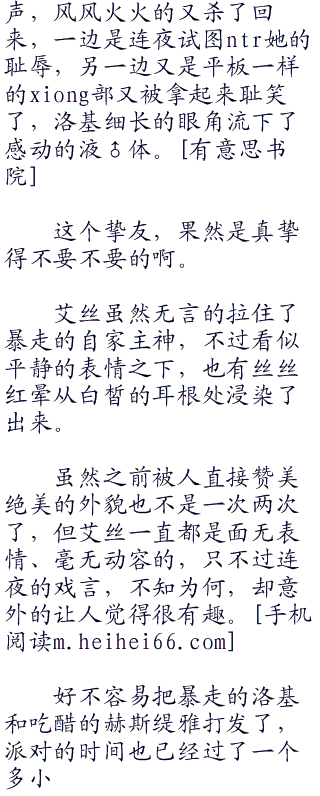 声，风风火火的又杀了回
来，一边是连夜试图ntr她的
耻辱，另一边又是平板一样
的xiong部又被拿起来耻笑
了，洛基细长的眼角流下了
感动的液♂体。[有意思书
院]
这个挚友，果然是真挚
得不要不要的啊。
艾丝虽然无言的拉住了
暴走的自家主神，不过看似
平静的表情之下，也有丝丝
红晕从白皙的耳根处浸染了
出来。
虽然之前被人直接赞美
绝美的外貌也不是一次两次
了，但艾丝一直都是面无表
情、毫无动容的，只不过连
夜的戏言，不知为何，却意
外的让人觉得很有趣。[手机
阅读m.heihei66.com]
好不容易把暴走的洛基
和吃醋的赫斯缇雅打发了，
派对的时间也已经过了一个
多小